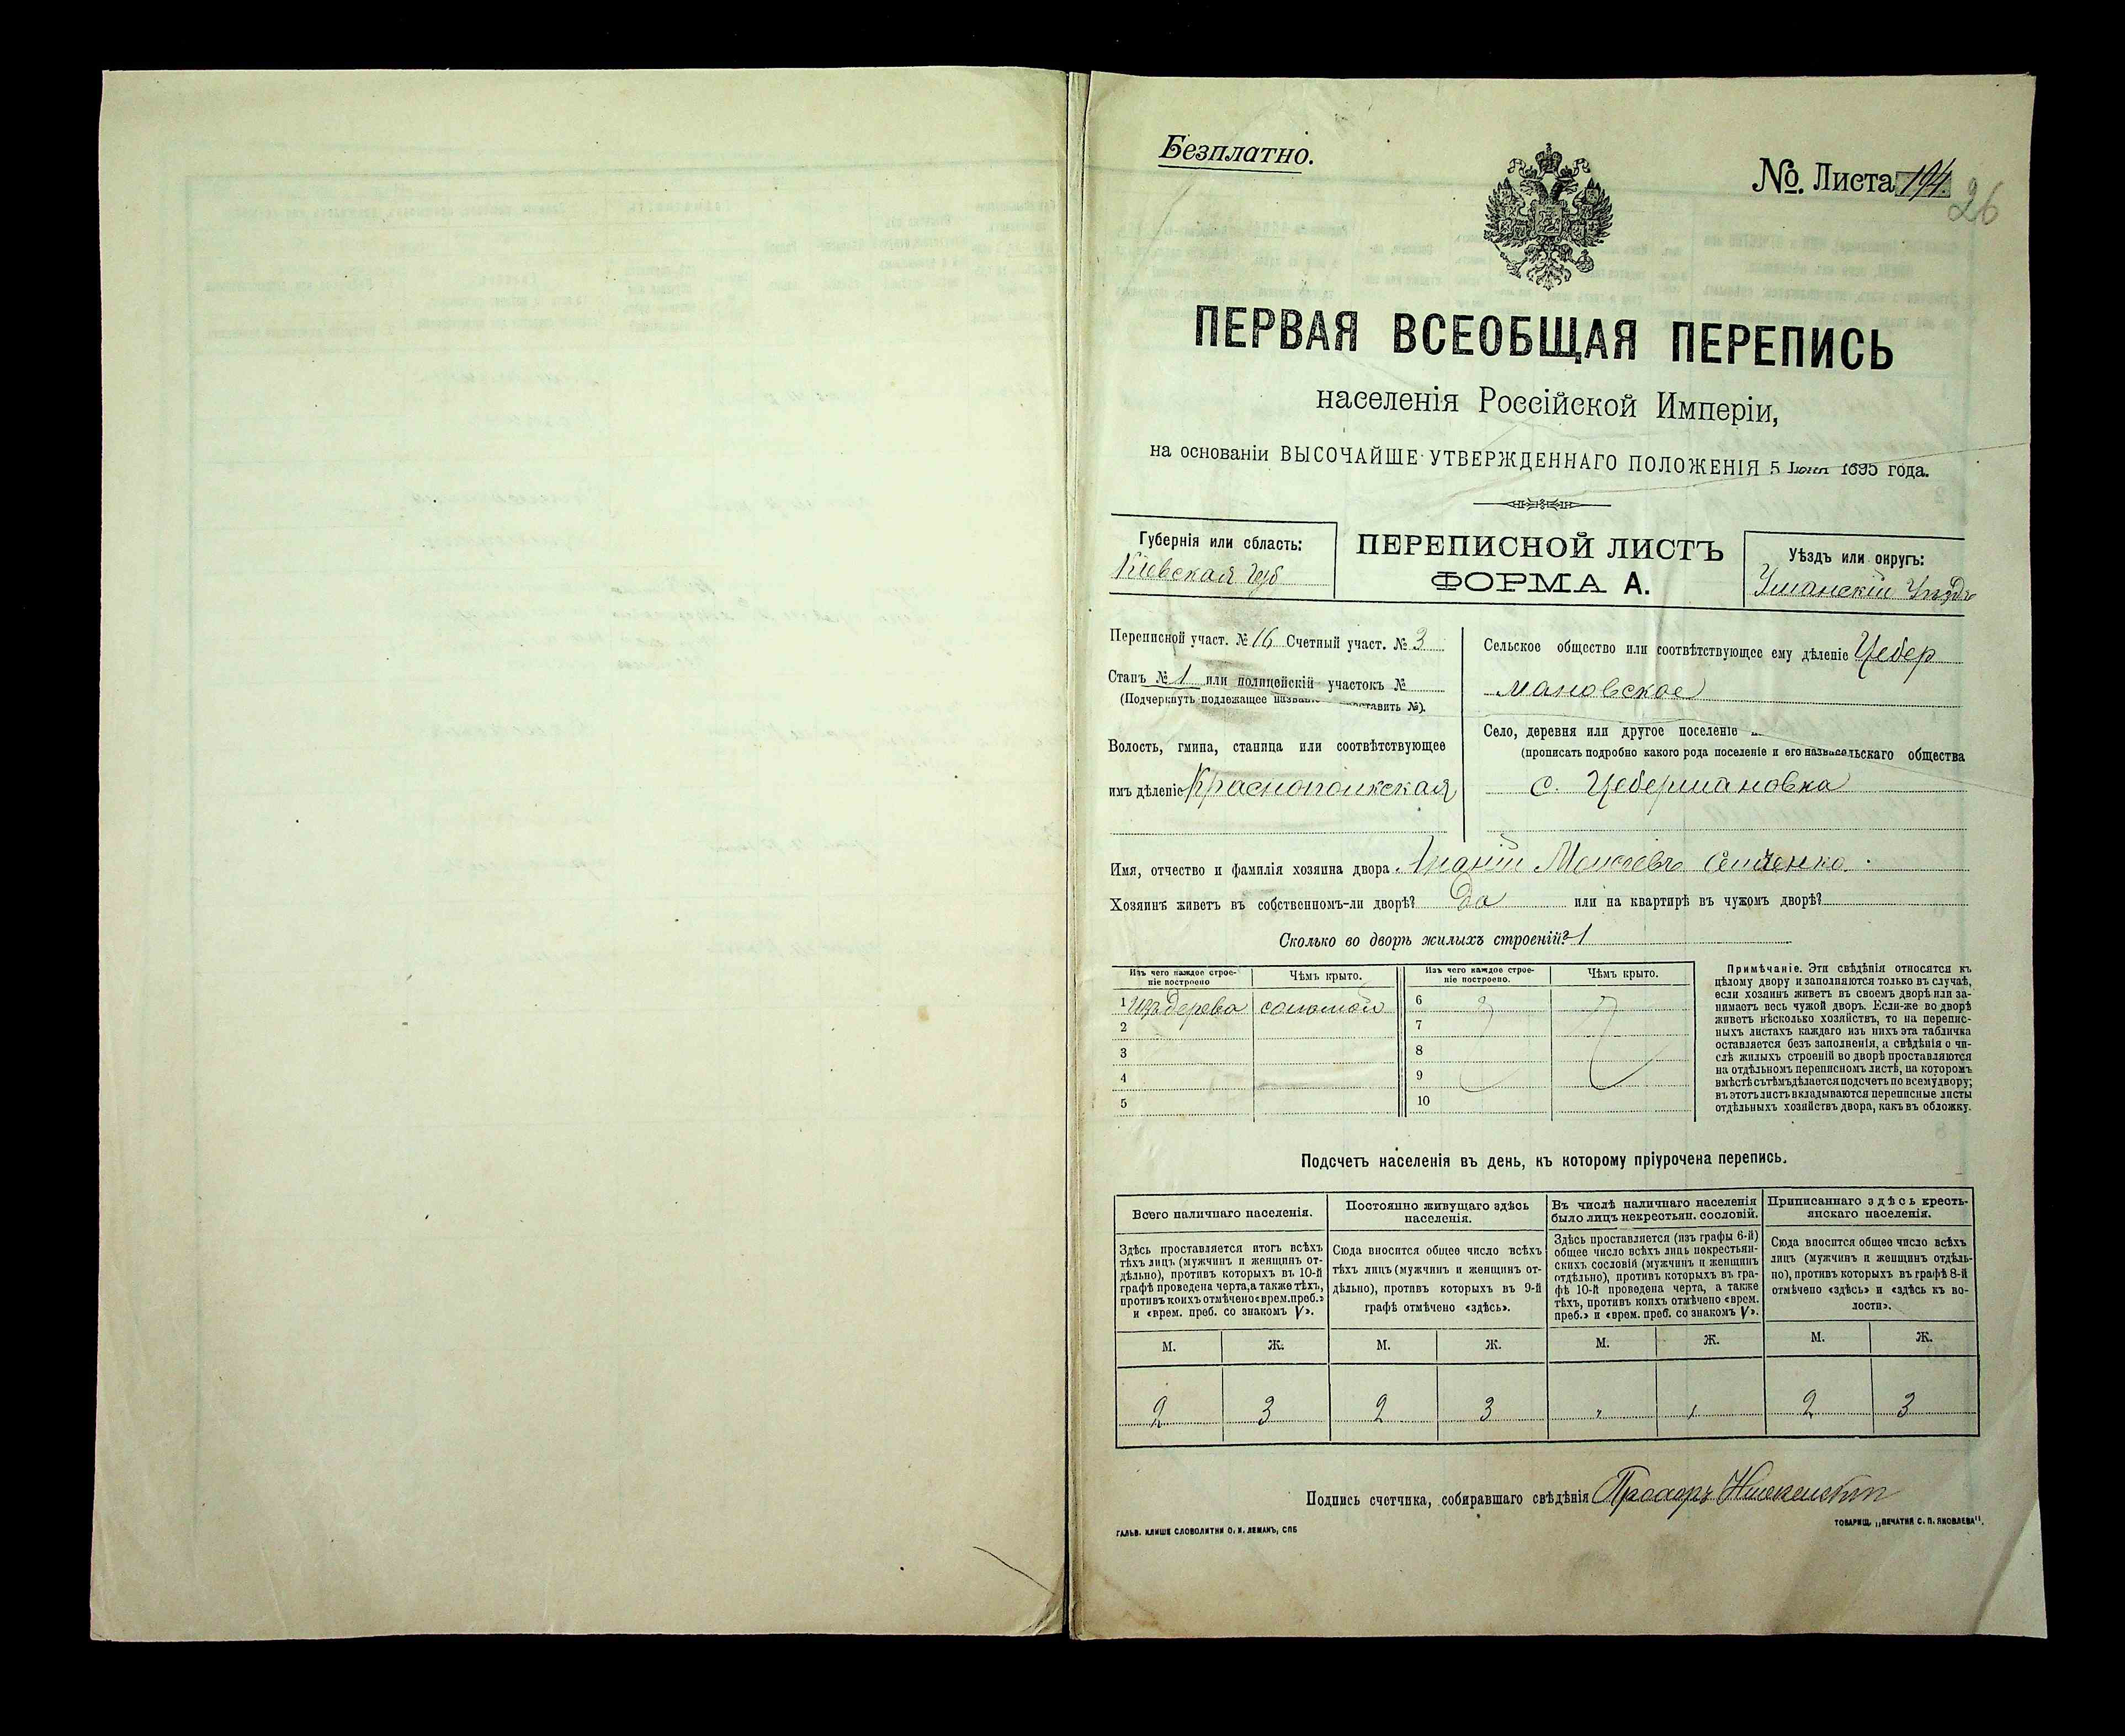 Безплатно.
№. Листа 194.
26
ПЕРВАЯ ВСЕОБЩАЯ ПЕРЕПИСЬ
населенія Россійской Имперіи,
на основаніи ВЫСОЧАЙШЕ УТВЕРЖДЕННАГО ПОЛОЖЕНІЯ 5 Іюня 1895 года.
Губернія или область:
Кіевская губ
ПЕРЕПИСНОЙ ЛИСТЪ
ФОРМА А.
Уѣздъ или округъ:
Уманскій Уѣздъ
Переписной участ. № 16 Счетный участ. № 3
Станъ № 1 или полицейскій участокъ №
(Подчеркнуть подлежащее названіе проставить №).
Волость, гмина, станица или соотвѣтствующее
имъ дѣленіе Краснополкская
Сельское общество или соотвѣтствующее ему дѣленіе Цебер
мановское
Село, деревня или другое поселеніе
(прописать подробно какого рода поселеніе и его назва ельскаго общества
с. Цебермановка
Имя, отчество и фамилія хозяина двора Ананій Моисеевъ
Хозяинъ живетъ въ собственномъ-ли дворѣ? Да или на квартирѣ въ чужомъ дворѣ?
Сколько во дворѣ жилыхъ строеній? 1
Изъ чего каждое строе-
ніе построено
Чѣмъ крыто.
Изъ чего каждое строе-
ніе построено.
Чѣмъ крыто.
1 изъ дерева соломой 6
2 7
3 8
4 9
5 10
Примѣчаніе. Эти свѣдѣнія относятся къ
цѣлому двору и заполняются только въ случаѣ,
если хозяинъ живетъ въ своемъ дворѣ или за-
нимаетъ весь чужой дворъ. Если-же во дворѣ
живетъ нѣсколько хозяйствъ, то на перепис-
ныхъ листахъ каждаго изъ нихъ эта табличка
оставляется безъ заполненія, а свѣдѣнія о чи-
слѣ жилыхъ строеній во дворѣ проставляются
на отдѣльномъ переписномъ листѣ, на которомъ
вмѣстѣ съ тѣмъ дѣлается подсчетъ по всему двору;
въ этотъ листъ вкладываются переписные листы
отдѣльныхъ хозяйствъ двора, какъ въ обложку.
Подсчетъ населенія въ день, къ которому пріурочена перепись.
Всего наличнаго населенія.
Здѣсь проставляется итогъ всѣхъ
тѣхъ лицъ (мужчинъ и женщинъ от-
дѣльно), противъ которыхъ въ 10-й
графѣ проведена черта, а также тѣхъ,
противъ коихъ отмѣчено «врем. преб.»
и «врем. преб. со знакомъ V».
Постоянно живущаго здѣсь
населенія.
Сюда вносится общее число всѣхъ
тѣхъ лицъ (мужчинъ и женщинъ от-
дѣльно), противъ которыхъ въ 9-й
графѣ отмѣчено «здѣсь».
Въ числѣ наличнаго населенія
было лицъ некрестьян. сословій.
Здѣсь проставляется (изъ графы 6-й)
общее число всѣхъ лицъ некрестьян-
скихъ сословій (мужчинъ и женщинъ
отдѣльно), противъ которыхъ въ гра-
фѣ 10-й проведена черта, а также
тѣхъ, противъ коихъ отмѣчено «врем.
преб.» и «врем. преб. со знакомъ V».
Приписаннаго здѣсь кресть-
янскаго населенія.
Сюда вносится общее число всѣхъ
лицъ (мужчинъ и женщинъ отдѣль-
но), противъ которыхъ въ графѣ 8-й
отмѣчено «здѣсь» и «здѣсь къ во-
лости».
М. Ж. М. Ж. М. Ж. М. Ж.
2 3 2 3 " " 2 3
Подпись счетчика, собиравшаго свѣдѣнія Прохоръ
ГАЛЬВ. КЛИШЕ СЛОВОЛИТНИ О. И. ЛЕМАНЪ, СПБ
ТОВАРИЩ. „ПЕЧАТНЯ С. П. ЯКОВЛЕВА".